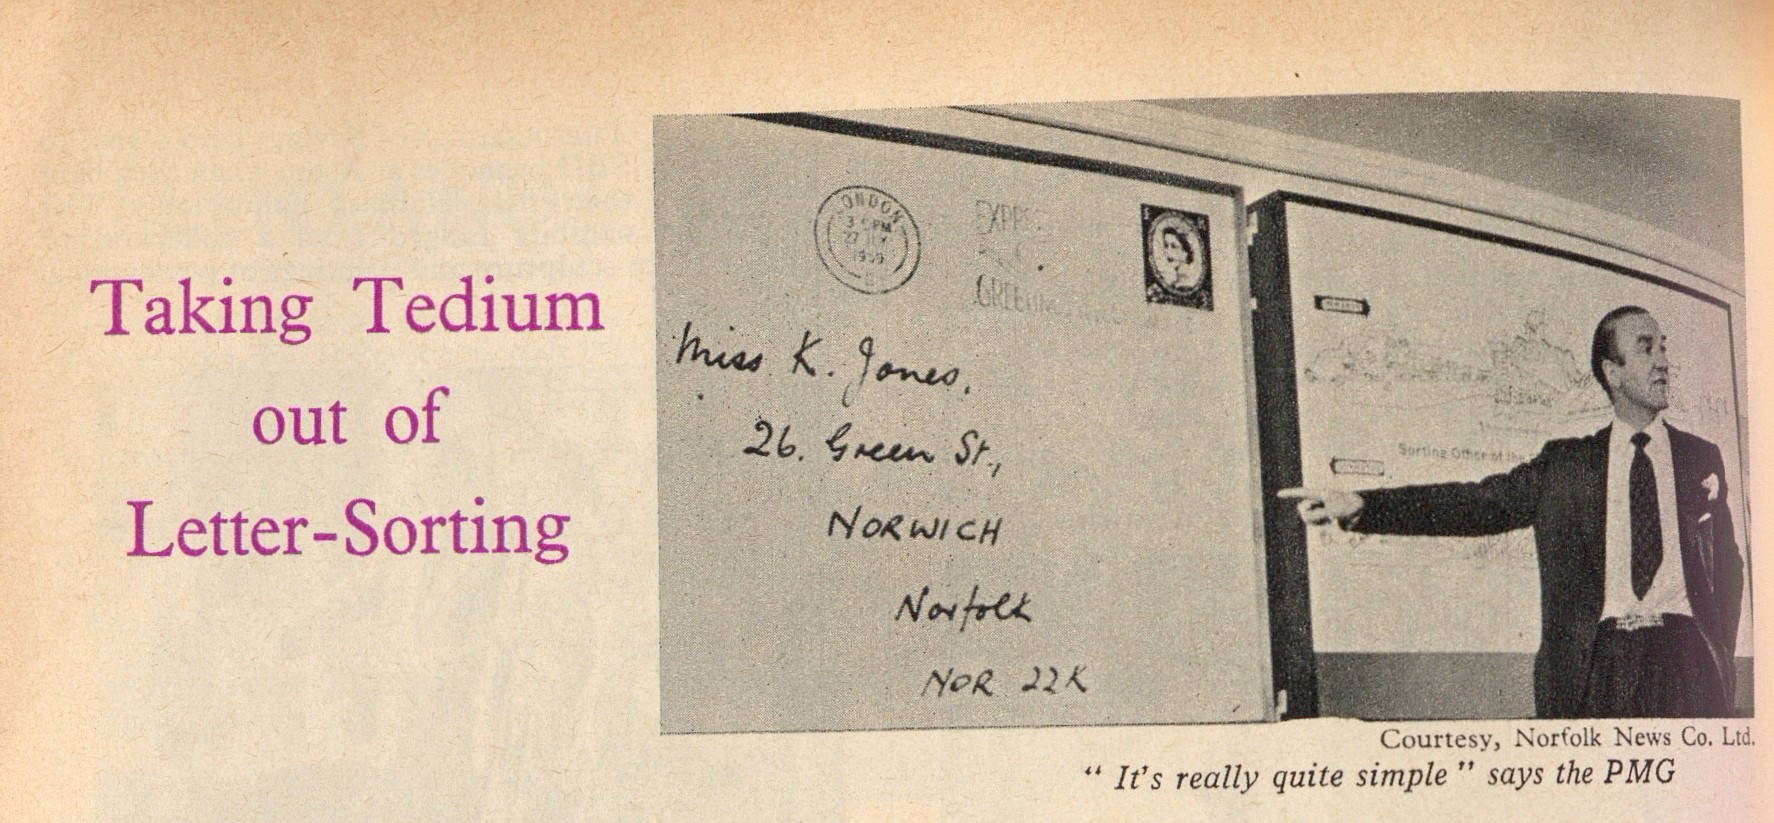 Taking Tedium
out of
Letter-Sorting
LONDON
3 PM
27 JLY
1959
GREETINGS
Miss K. Jones,
26. Green St.,
NORWICH
Norfolk
NOR 22K
Sorting Office of the
Courtesy, Norfolk News Co. Ltd.
“ It's really quite simple ” says the PMG